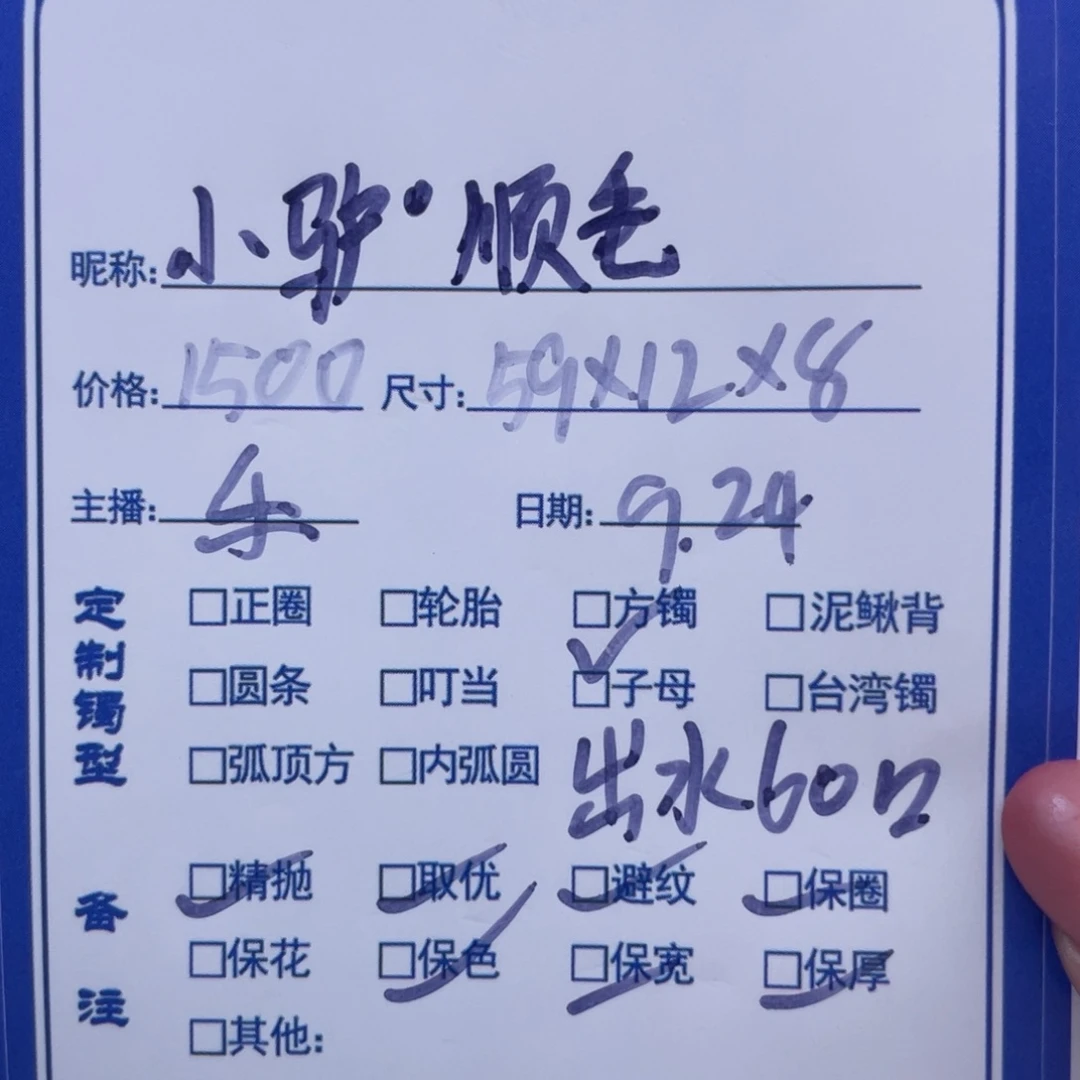 昵称: 小驴°顺毛
价格: 1500 尺寸: 59×12×8
主播: 乐 日期: 9.24
定制镯型
□正圈 □轮胎 □方镯 □泥鳅背
□圆条 □叮当 ☑子母 □台湾镯
□弧顶方 □内弧圆 出水60口
备注
☑精抛 ☑取优 ☑避纹 ☑保圈
□保花 ☑保色 ☑保宽 ☑保厚
□其他: